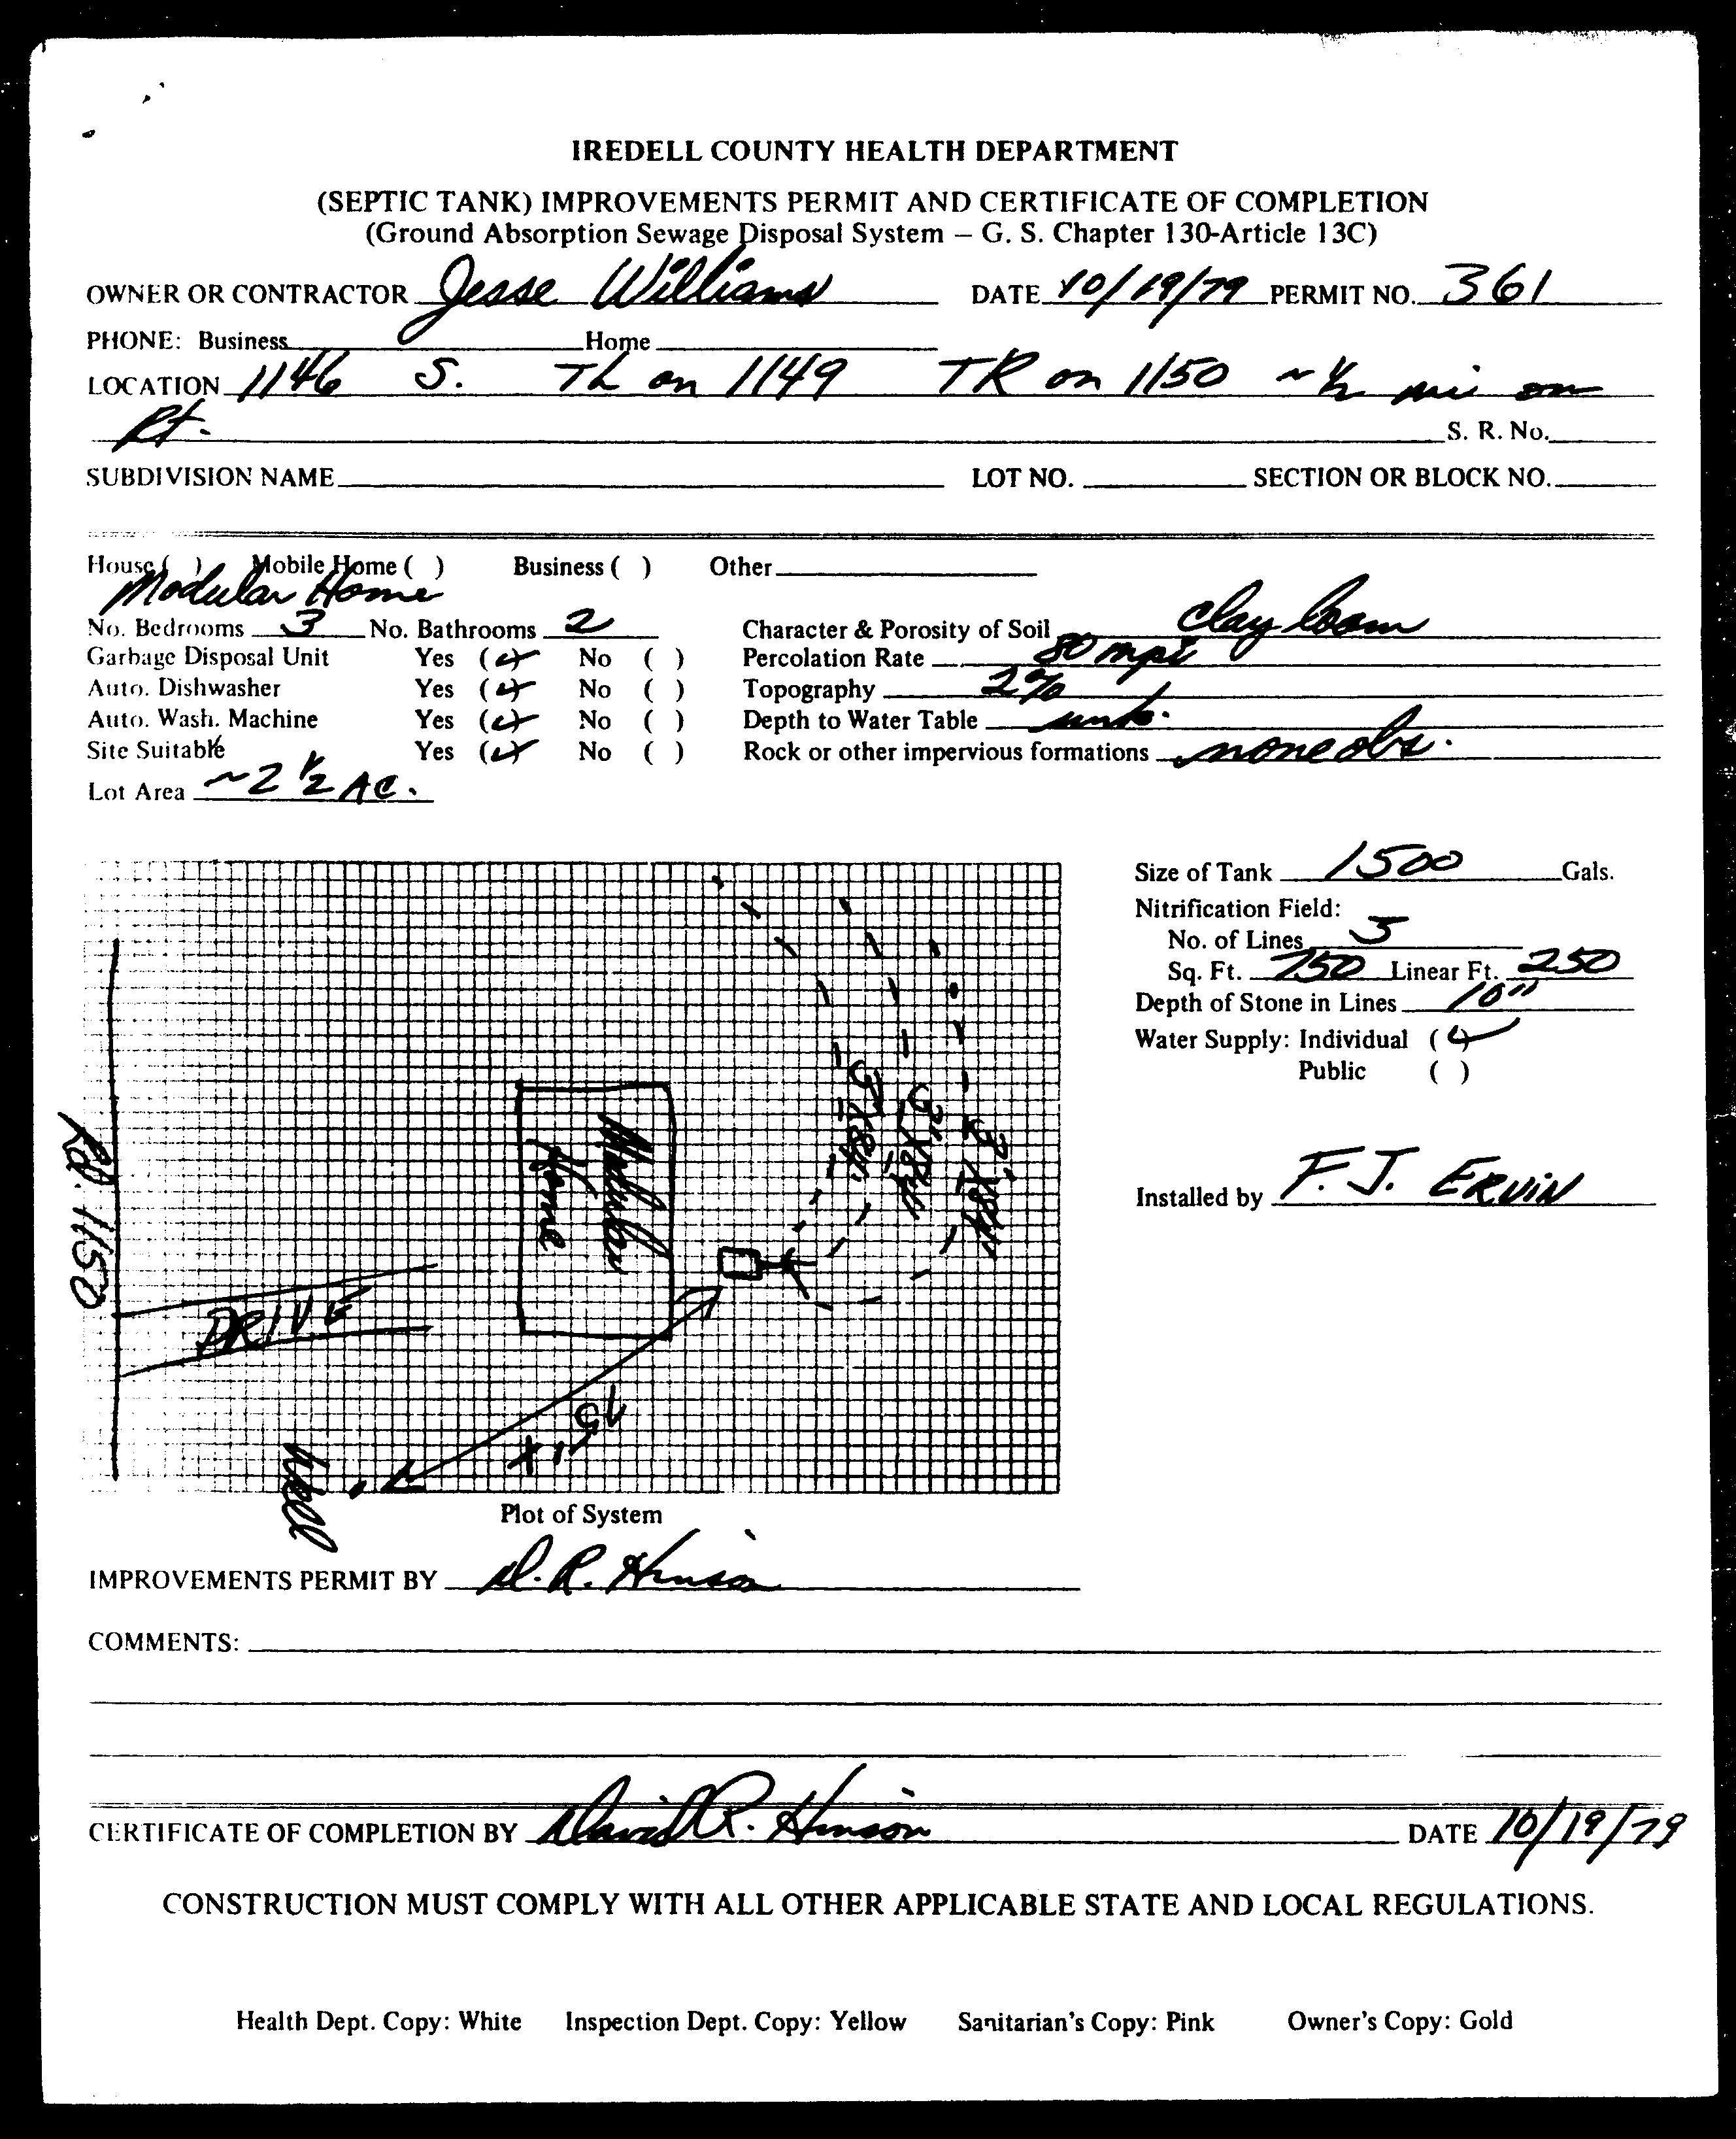 IREDELL COUNTY HEALTH DEPARTMENT
(SEPTIC TANK) IMPROVEMENTS PERMIT AND CERTIFICATE OF COMPLETION
(Ground Absorption Sewage Disposal System – G. S. Chapter 130-Article 13C)
OWNER OR CONTRACTOR Jesse Williams DATE 10/19/79 PERMIT NO. 361
PHONE: Business Home
LOCATION 1146 S. TL on 1149 TR on 1150 ~ 1/2 mi on
Rt. S. R. No.
SUBDIVISION NAME LOT NO. SECTION OR BLOCK NO.
House ( ) Mobile Home ( ) Business ( ) Other
Modular Home
No. Bedrooms 3 No. Bathrooms 2 Character & Porosity of Soil clay loam
Garbage Disposal Unit Yes (✓) No ( ) Percolation Rate 80 mpi
Auto. Dishwasher Yes (✓) No ( ) Topography 2%
Auto. Wash. Machine Yes (✓) No ( ) Depth to Water Table unk.
Site Suitable Yes (✓) No ( ) Rock or other impervious formations none obs.
Lot Area ~2 1/2 AC.
Size of Tank 1500 Gals.
Nitrification Field:
No. of Lines
Sq. Ft. 750 Linear Ft. 250
Depth of Stone in Lines 10"
Water Supply: Individual (✓)
Public ( )
Installed by F. J. ERVIN
Rd. 1150
DRIVE
Modular
Home
3'X84'
3'X84'
3'X84'
75'+
well
Plot of System
IMPROVEMENTS PERMIT BY D. R. Hinson
COMMENTS:
CERTIFICATE OF COMPLETION BY David R. Hinson DATE 10/19/79
CONSTRUCTION MUST COMPLY WITH ALL OTHER APPLICABLE STATE AND LOCAL REGULATIONS.
Health Dept. Copy: White Inspection Dept. Copy: Yellow Sanitarian's Copy: Pink Owner's Copy: Gold